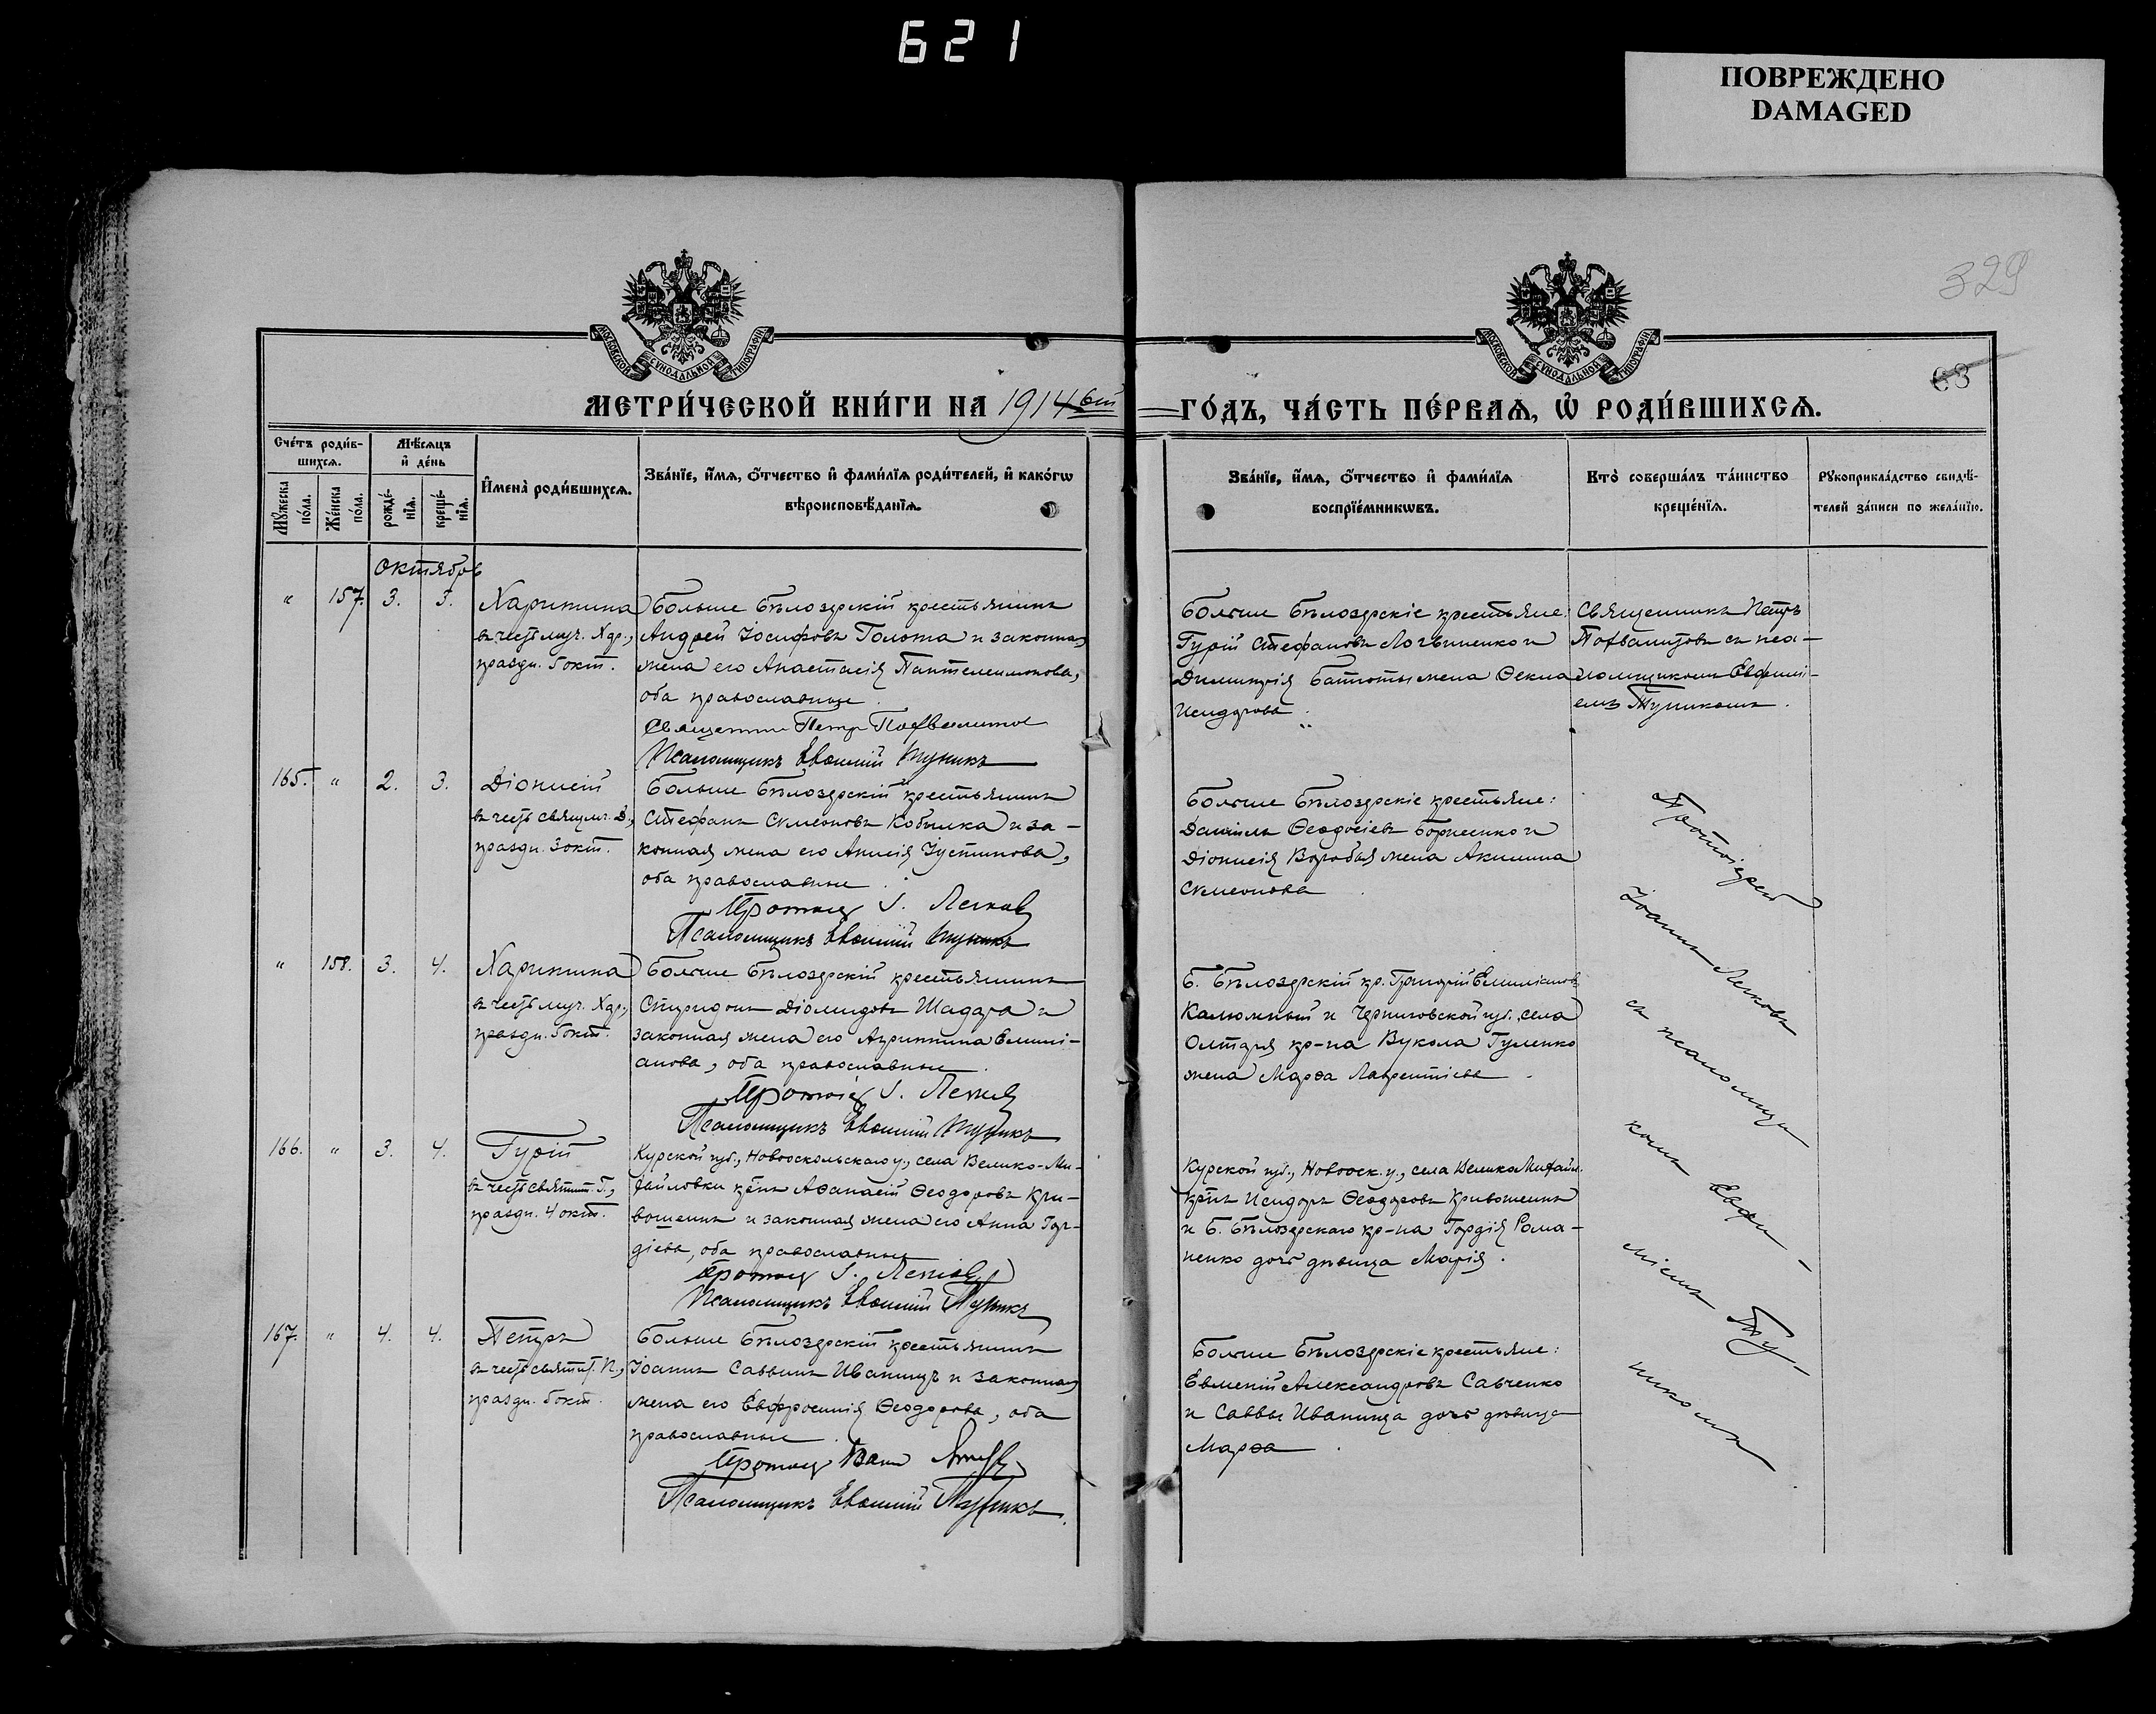 621
ПОВРЕЖДЕНО
DAMAGED
329
63
МОСКОВСКОЙ СѴНОДАЛЬНОЙ ТИПОГРАФІИ
МОСКОВСКОЙ СѴНОДАЛЬНОЙ ТИПОГРАФІИ
МЕТРИ́ЧЕСКОЙ КНИ́ГИ НА 1914 ый ГО́ДЪ, ЧА́СТЬ ПЕ́РВАѦ, Ѡ РОДИ́ВШИХСѦ.
Сче́тъ роди́в-
шихсѧ.
Мѣ́сѧцъ
и҆ де́нь
Мꙋ́жеска по́ла.
Же́нска по́ла.
рожде́-
нїѧ.
креще́-
нїѧ.
И҆мена̀ роди́вшихсѧ.
Зва́нїе, и҆́мѧ, ѻ҆́тчество и҆ фами́лїѧ роди́телей, и҆ како́гѡ
вѣроисповѣ́данїѧ.
Зва́нїе, и҆́мѧ, ѻ҆́тчество и҆ фами́лїѧ
воспрїе́мникѡвъ.
Кто̀ соверша́лъ та́инство
креще́нїѧ.
Рꙋкоприкла́дство свидѣ́-
телей за́писи по жела́нїю.
Октябрь
" 157. 3. 3.
Харитина
въ честь муч. Хар.,
праздн. 5 окт.
Больше Бѣлозерскій крестьянинъ
Андрей Іосифовъ Голота и законная
жена его Анастасія Пантелеимонова,
оба православные.
Священникъ Петр
Псаломщикъ Евфимій Тупикъ
Больше Бѣлозерскіе крестьяне:
Гурій Стефановъ Логвиненко и
Димитрія жена Ѳекла
Исидорова.
Священникъ Петръ
съ пса-
ломщикомъ Евфимі-
емъ Тупикомъ.
165. " 2. 3.
Діонисій
въ честь священм. Д.,
праздн. 3 окт.
Больше Бѣлозерскій крестьянинъ
Стефанъ Симеоновъ Кобылка и за-
конная жена его Анисія Іустинова,
оба православные.
І. Лесковъ
Псаломщикъ Евфимій Тупикъ
Больше Бѣлозерскіе крестьяне:
Даніилъ Ѳеодосіевъ Борисенко и
Діонисія Воробья жена Акилина
Симеонова.
Протоіерей
Іоаннъ Лесковъ
съ псаломщи-
комъ Евфи-
міемъ Ту-
пикомъ
" 158. 3. 4.
Харитина
въ честь муч. Хар.,
праздн. 5 окт.
Больше Бѣлозерскій крестьянинъ
Спиридонъ Діомидовъ Шадура и
законная жена его Агриппина Емили-
анова, оба православные.
Протоіер І. Лесков
Псаломщикъ Евфимій Тупикъ
Б. Бѣлозерскій кр. Григорій Емиліановъ
Калюжный и Черниговской губ., села
Олтаря кр-на Вукола Гуленко
жена Марѳа Лаврентіева.
166. " 3. 4.
Гурій
въ честь святит. Г.,
праздн. 4 окт.
Курской губ., Новооскольскаго у., села Велико-Ми-
хайловки кр-нъ Аѳанасій Ѳеодоровъ Кри-
вошеинъ и законная жена его Анна Гор-
діева, оба православные
І. Лесковъ
Псаломщикъ Евфимій Тупикъ
Курской губ., Новооск. у., села Велико Михайл.
кр-нъ Исидоръ Ѳеодоровъ Кривошеинъ
и Б. Бѣлозерскаго кр-на Гордія Рома-
ненко дочь дѣвица Марія.
167. " 4. 4.
Петръ
въ честь святит. П.,
праздн. 5 окт.
Больше Бѣлозерскій крестьянинъ
Іоаннъ Саввинъ Иваницъ и законная
жена его Евфросинія Ѳеодорова, оба
православные.
Псаломщикъ Евфимій Тупикъ.
Больше Бѣлозерскіе крестьяне:
Евменій Александровъ Савченко
и Саввы Иваница дочь дѣвица
Марѳа.